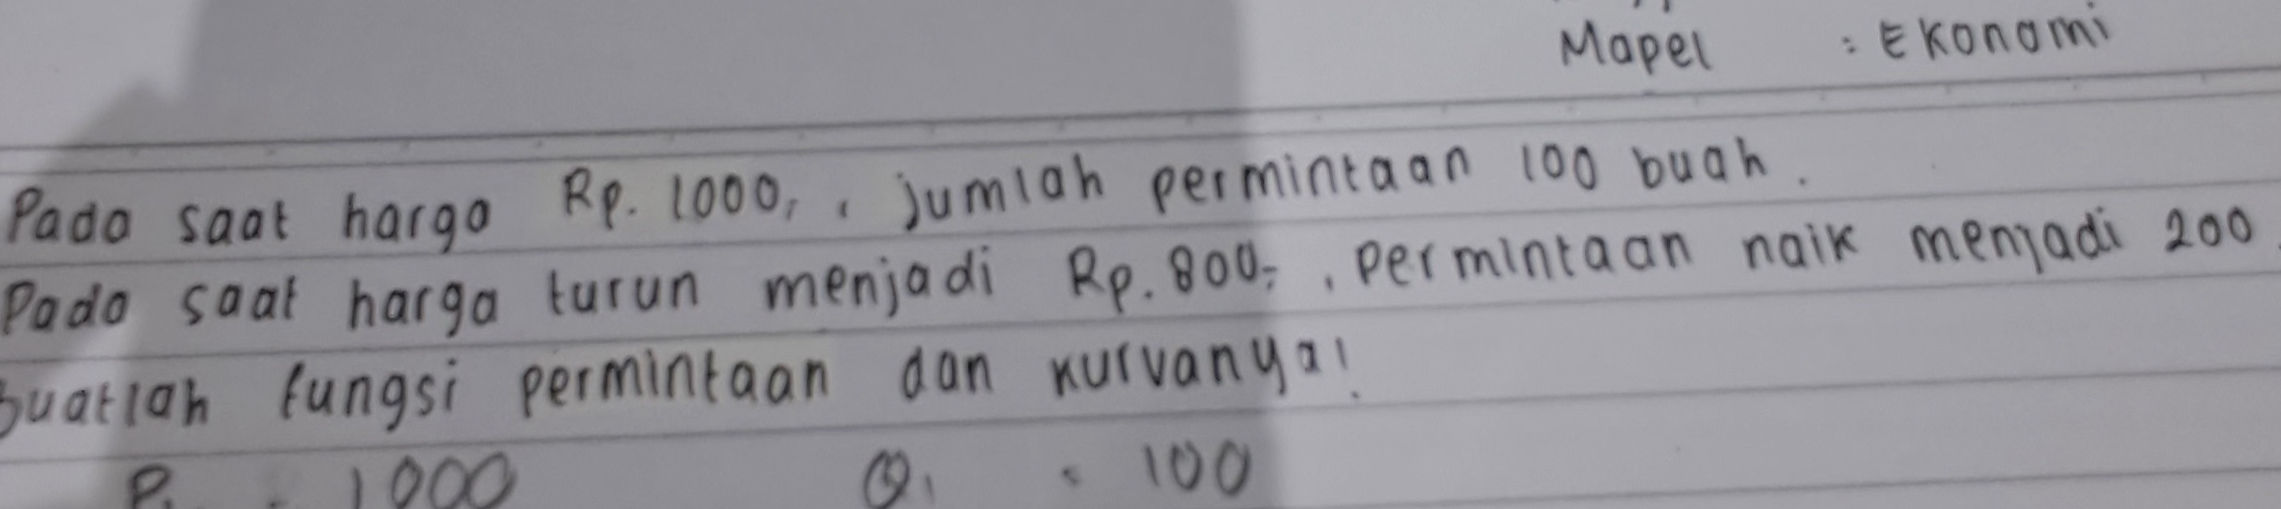 Mapel : Ekonomi
Pada saat harga Rp. 1000,, jumlah permintaan 100 buah.
Pada saat harga turun menjadi Rp. 800,-, permintaan naik menjadi 200
buatlah fungsi permintaan dan kurvanya!
P1 = 1000 Q1 = 100